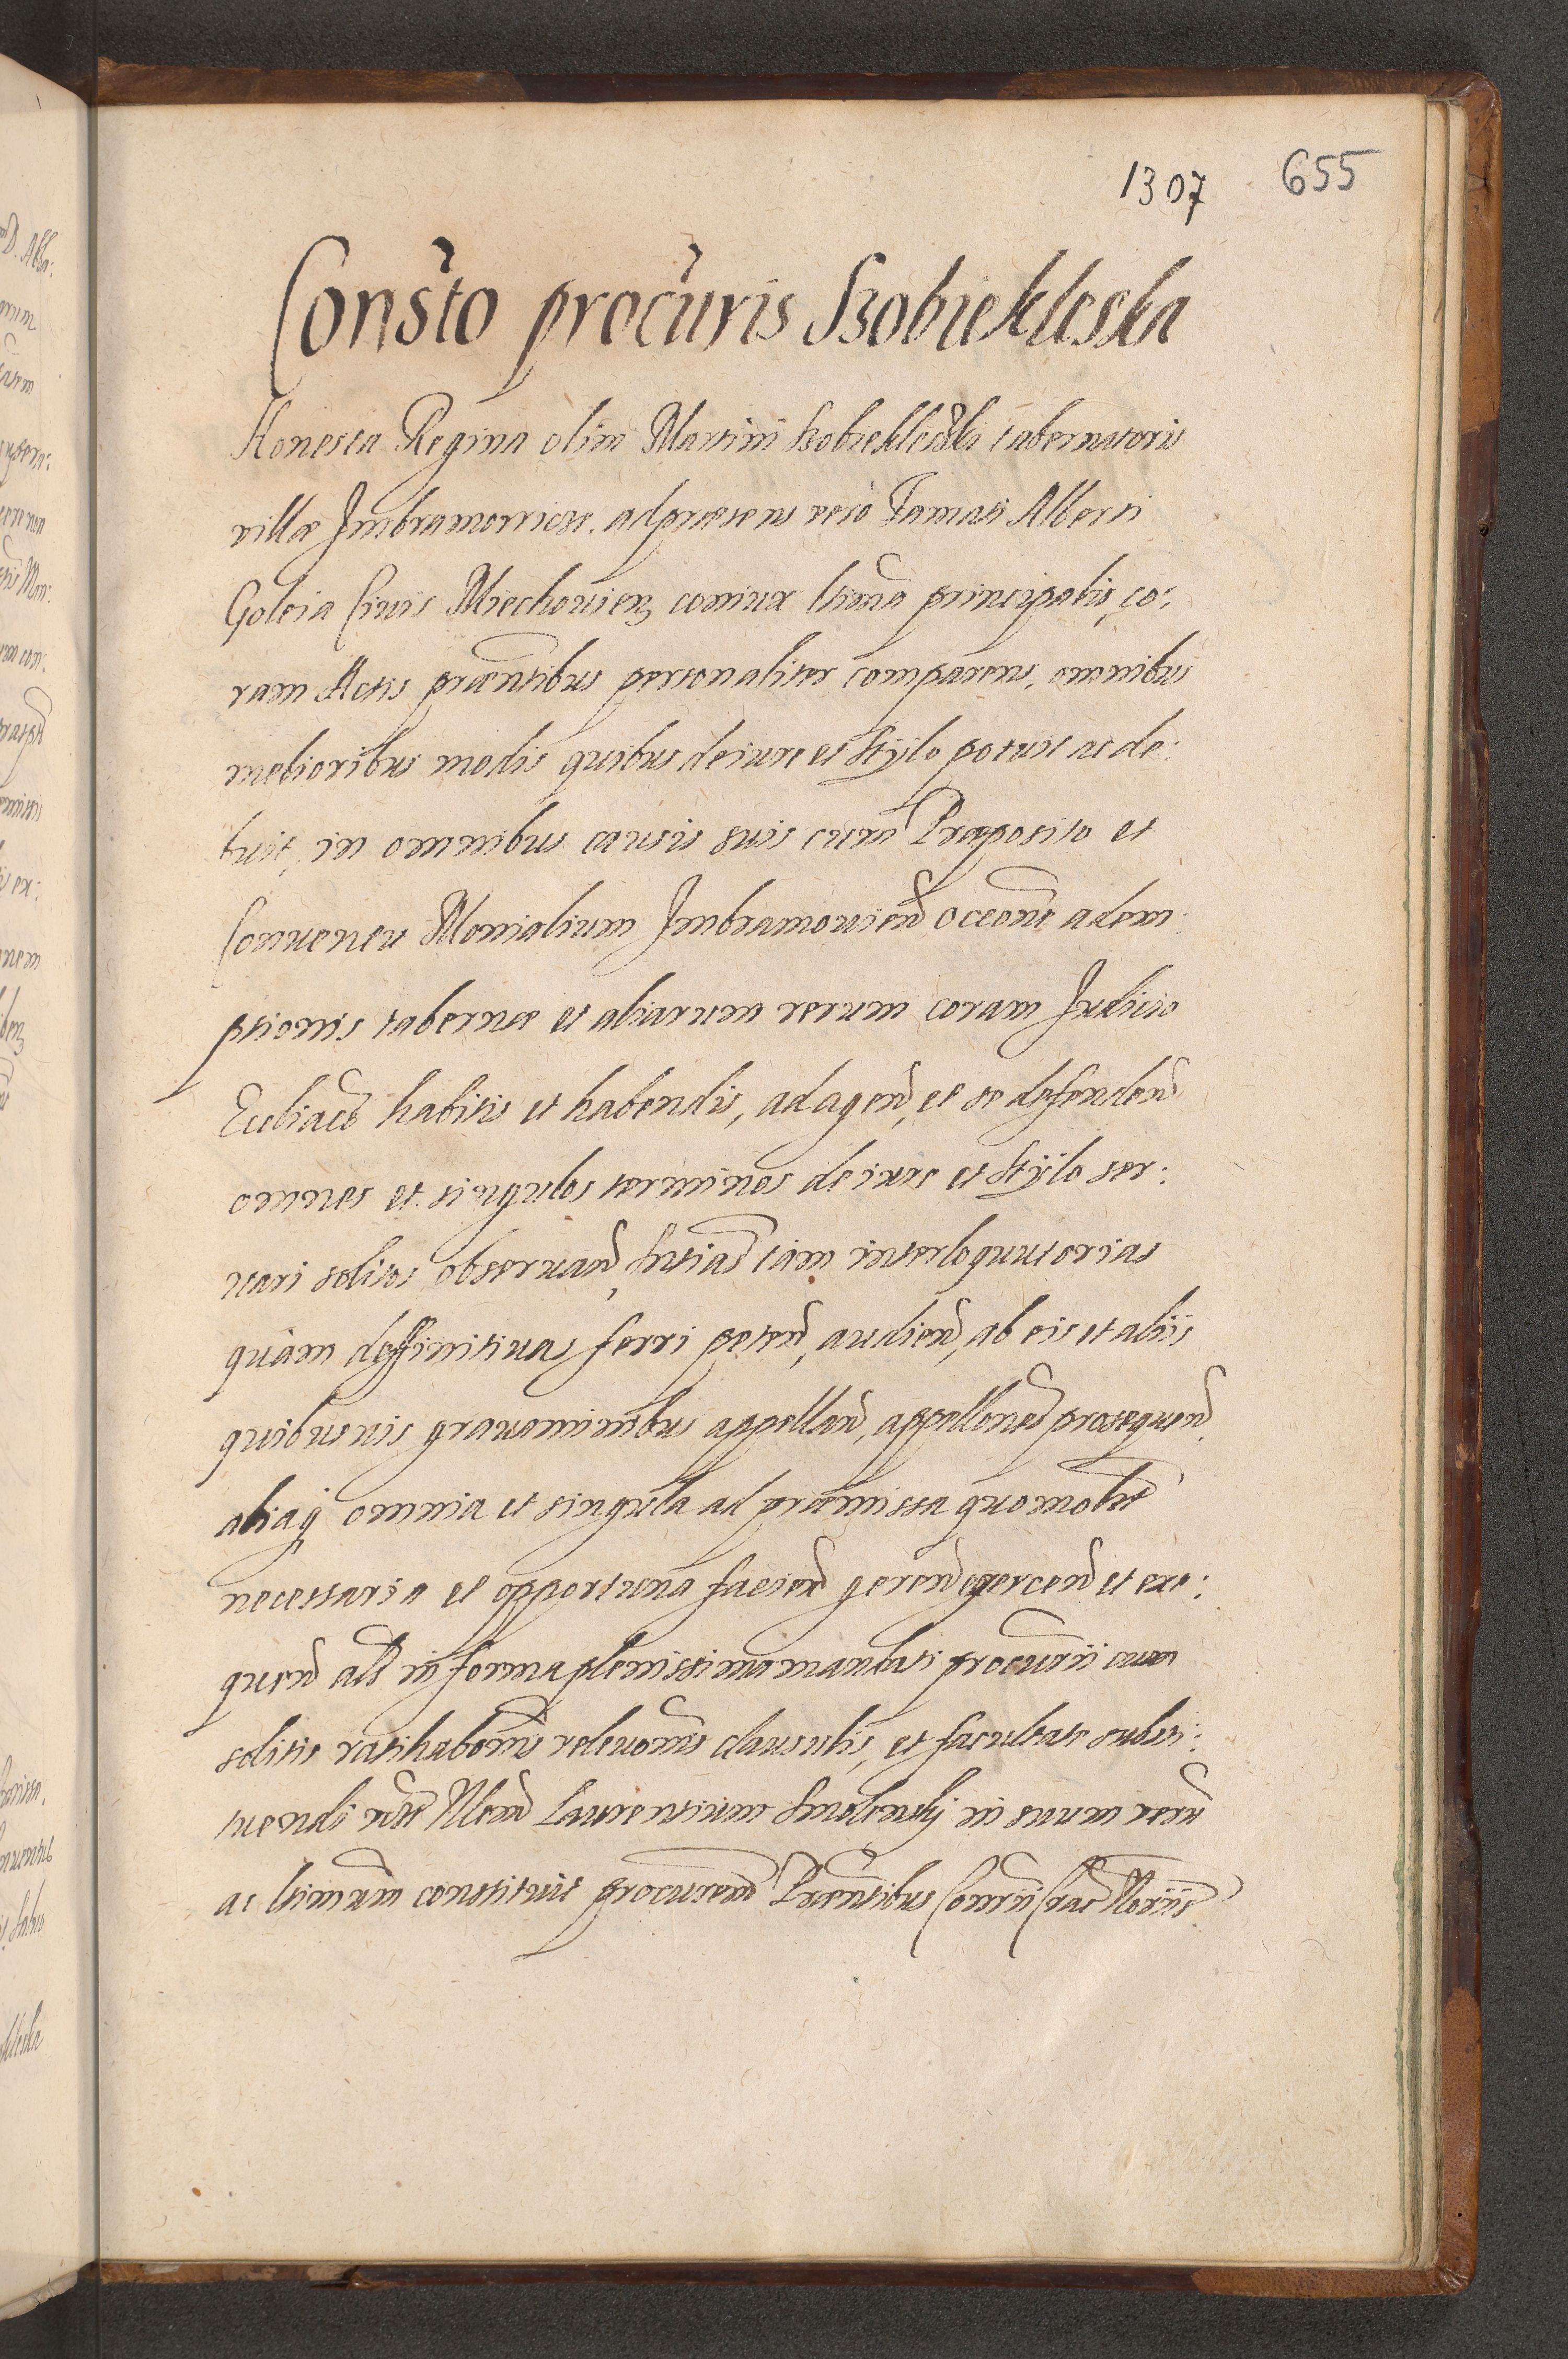 1307 655
Consto procuris Szobiekleska
Honesta Regina olim Martini Szobiekleski tabernatoris
villæ Imbramovice. adpræsens vero Famati Alberti
Goleia Civis Miechouien coniux ltima principalis, co:
ram Actis præntibus personaliter comparens, omnibus
melioribus modis quibus de iure et stylo potuit ac de:
buit, in omnibus causis suis cum Præposito et
Conuentu Monialium Imbramouien occone adem:
ptionis tabernæ et aliarum rerum coram Judicio
habitis et habendis, ad agend, et se defendend
omnes et singulos terminos de iure et stylo ser:
uari solitos obseruand, sntias tam interloquutorias
quàm deffinitiuas ferri petend, audiend, ab eis et aliis
quibusuis grauaminibus appelland, appellones prosequend
aliaq omnia et singula ad præmissa quomolt
necessaria et opportuna faciend gerend exercend et exe:
quend als in forma plenissima mandati procurii cum
solitis ratihabonis releuonis clausulis, et facultate substi:
tuendi Laurentium Smolensky in suum verum
ac ltimum constituit procurem Præntibus